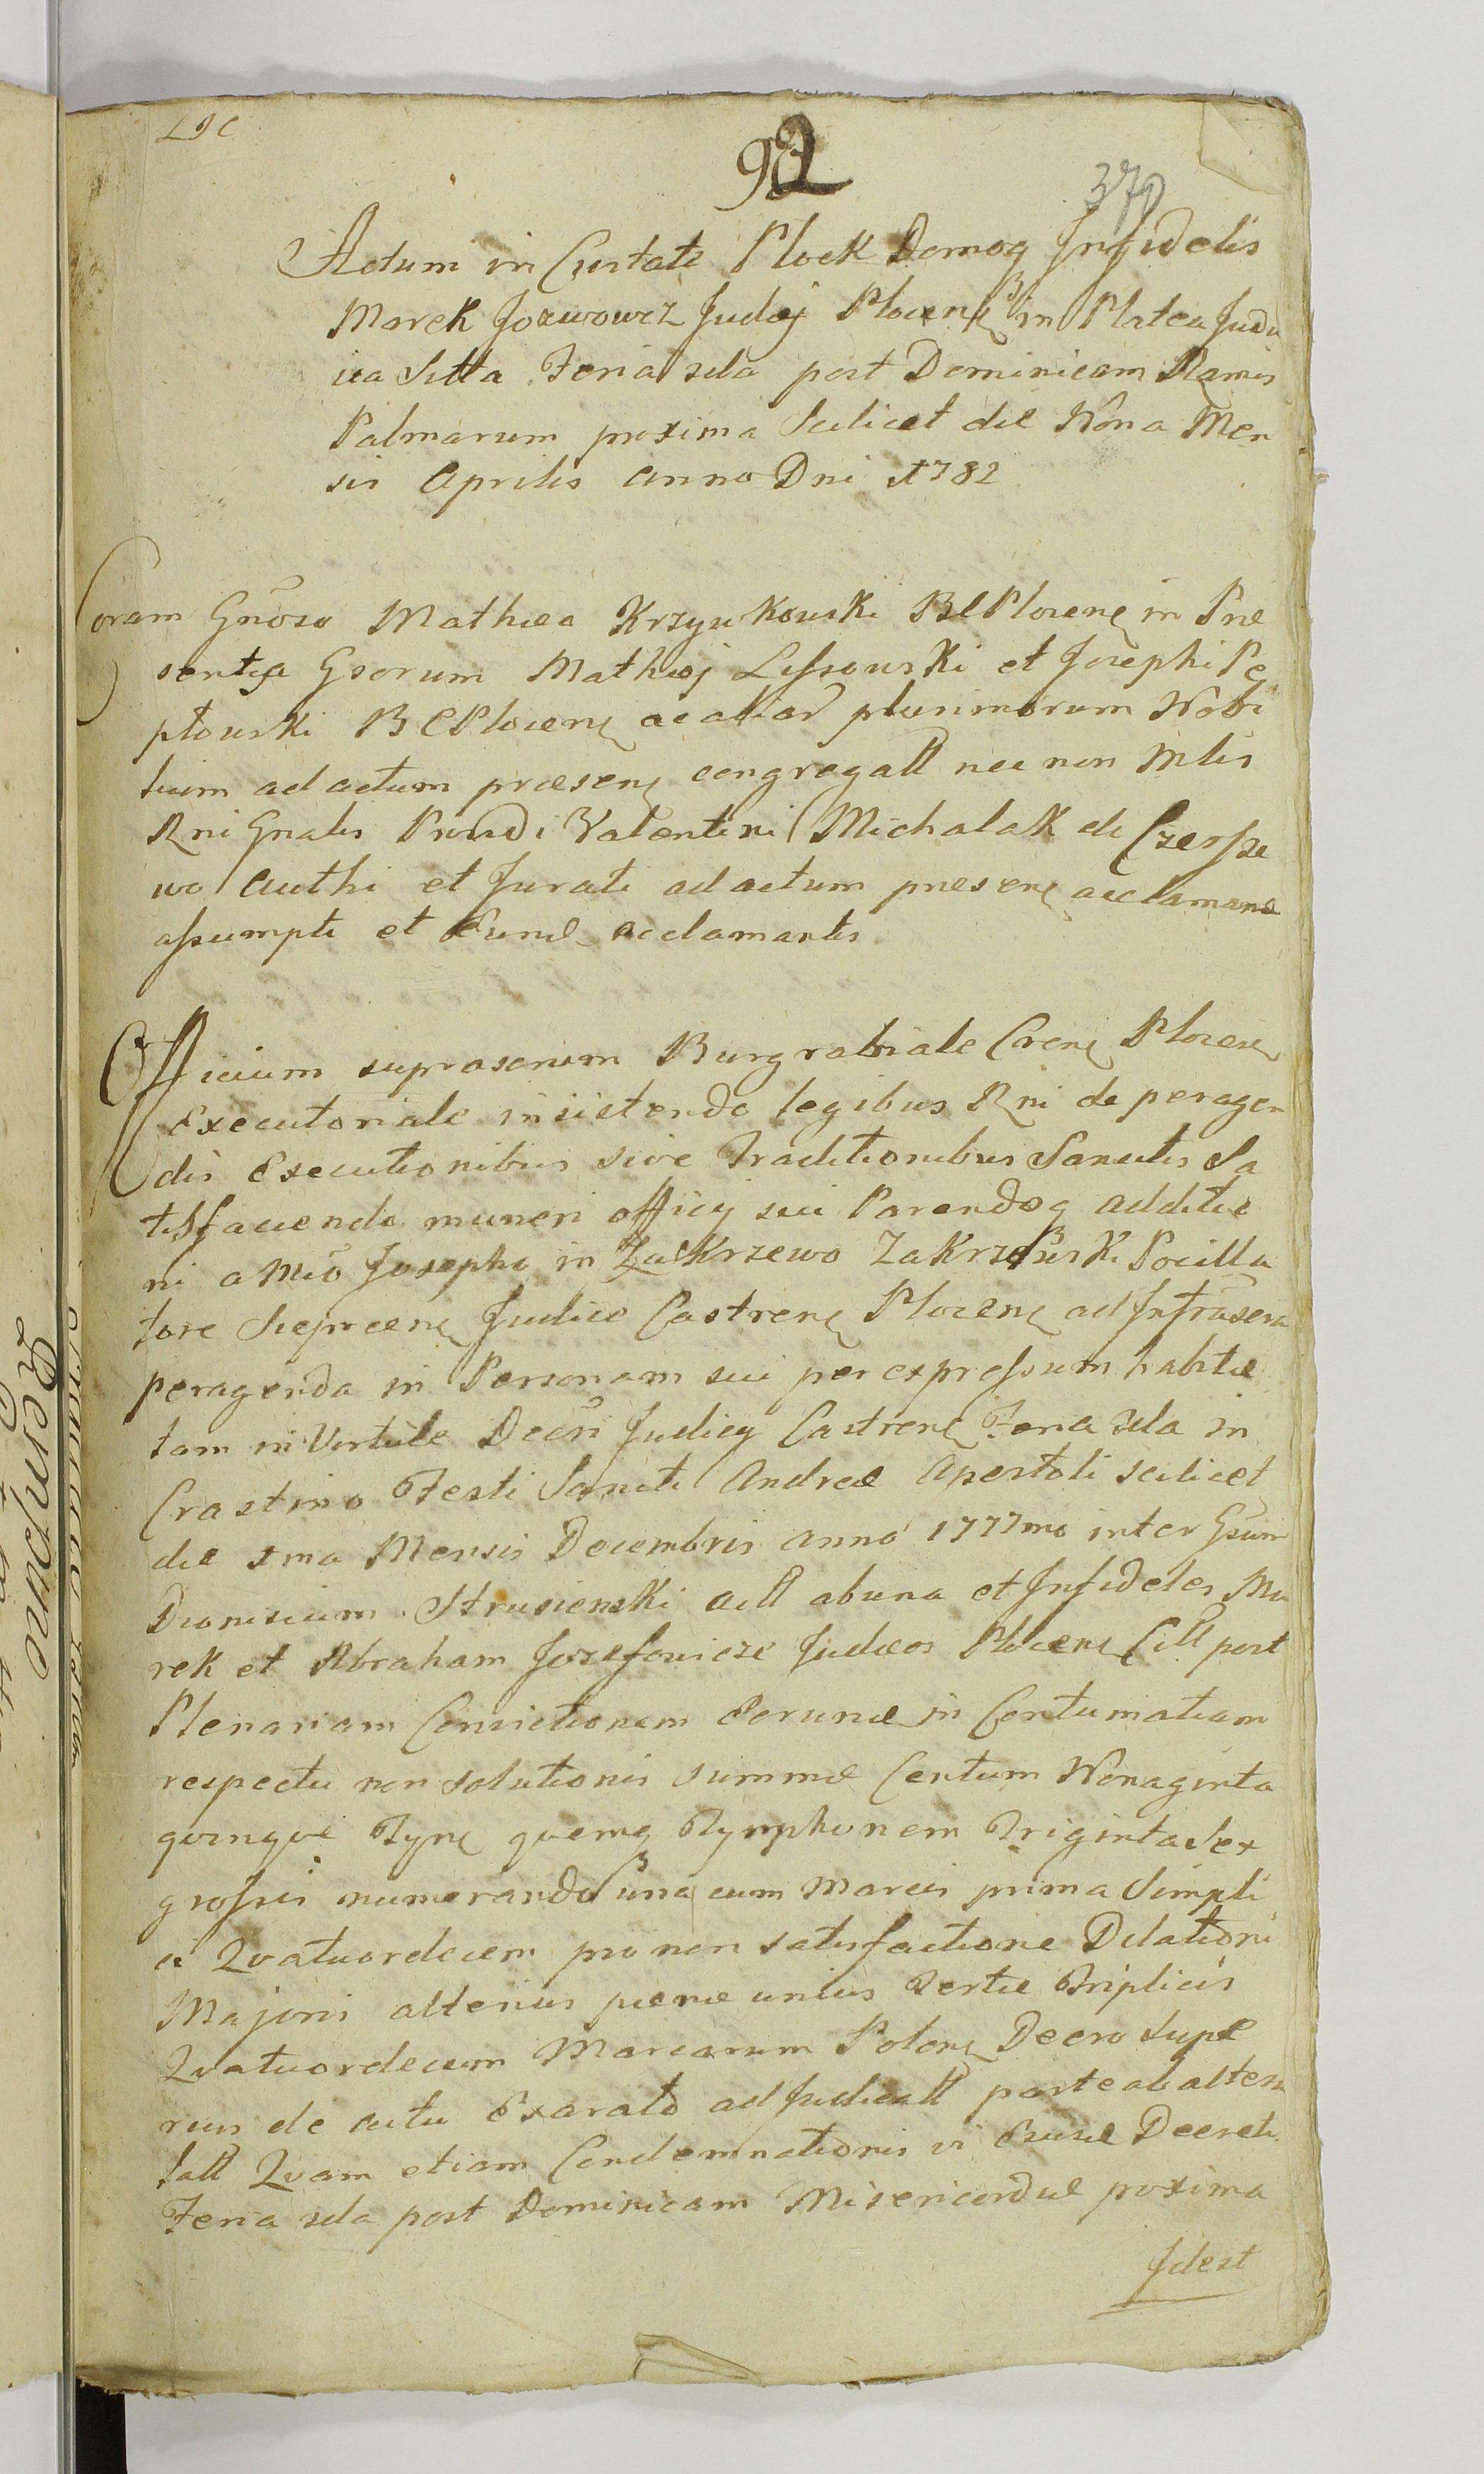 LIC
92
370
Actum in Civitate Plock Domoq Infidelis
Marek Jozwowicz Judej Plocenę in Platea Juda
ica Sitta Feria sda post Dominicam Ramis
Palmarum proxima Scilicet die Nona Men
sis Aprilis Anno Dni 1782
Coram Gnoso Mathæo Krzyukouski BC Plocenę in Præ
sentia Gsorum Mathiej Lissouski et Josephi Pę
ptouski BC Plocenę ac alior plurimorum Nobi
lium ad actum præsenę congregatt nec non Mlis
Rni Gnalis Provdi Valentini Michalak de Czersze
wo Authi et Jurati ad actum præsenę acclamane
assumpti et Eund acclamantis
Officium suprascrium Burgrabiale Crenę Plocenę
Executoriale insistendo legibus Rni de peragen
dis Executionibus sive Traditionibus Sancitis Sa
tisfaciendo muneri officij sui Parendoq additio
ni a Mco Josepho in Zakrzewo Zakrzewski Pocilla
tore Siepcenę Judice Castrenę Plocenę ad Infrascra
peragenda in Personam sui per expressum habitæ
tam in Virtute Decri Judicy Castrenę Feria sda in
Crastino Festi Sancti Andreæ Apostoli scilicet
die 1ma Mensis Decembris anno 1777mo inter Gsum
Dionisium Strusienski actt ab una et Infideles Ma
rek et Abraham Jozefowicze Judæos Plocenę Citt post
Plenariam Convictionem Eorund in Contumatiam
respectu non solutionis summæ Centum Nonaginta
qvinqve Tynę qvemq Tymphonem Triginta Sex
grossis numerando una cum Marcis prima Simpli
ci Qvatuordecem pro non satisfactione Dilationi
Majoris alterius pænæ unius Tertiæ Triplicis
Qvatuordecem Marcarum Polonę Decro Supe
rius de actu Exarato adjudicatt parte ab altera
latt Qvam etiam Condemnationis vi Ejusd Decreti
Feria sda post Dominicam Misericordiæ proxima
Idest